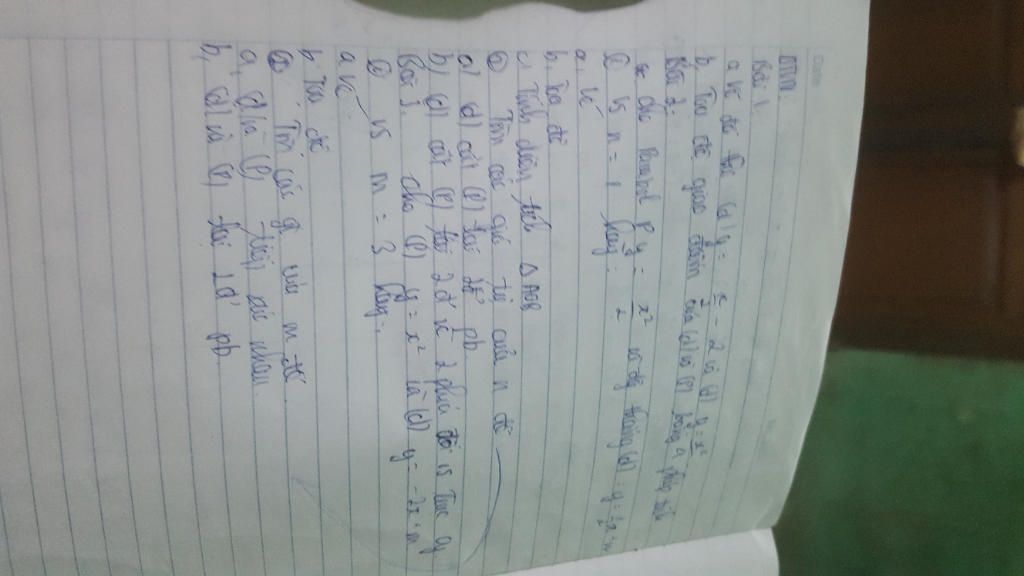 BTVN:
Bài 1.
a, Vẽ đồ thị (d) y = x - 2 và (P) y = x²
b, Toạ độ giao điểm của (d) và (P) bằng
Bài 2:
cho Parabol P y = x²/2 và đg thẳng (d)
① vs n = 1 hãy:
a, vẽ
b, Toạ độ
c, Tính diện tích Δ AOB
② Tìm các giá trị của n để
a) (d) cắt (P) tại 2đ pb
b) (d) cắt (P) tại 2 đ về 2 phía đối vs trục
Bài 3. cho (P) y = x² và (d) y = -2x + m
① vs m = 3 hãy:
a vẽ
b Toạ độ
② Tìm các gt của m để
a, (d) và (P) tiếp xúc nhau
b, (d) và (P) tại 2đ pb